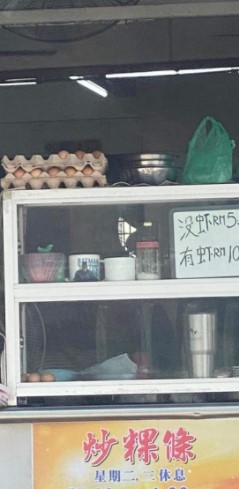 没虾RM5
有虾RM10
炒粿條
星期二,三休息